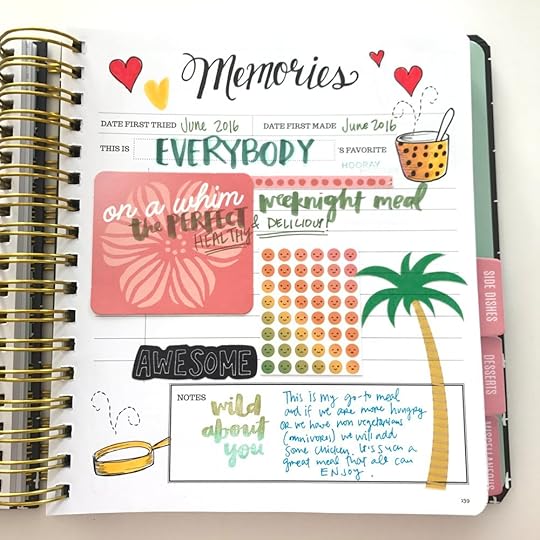 Memories
DATE FIRST TRIED June 2016 DATE FIRST MADE June 2016
THIS IS EVERYBODY 'S FAVORITE
HOORAY
on a whim
weeknight meal
the PERFECT
HEALTHY & DELICIOUS!
AWESOME
SIDE DISHES
DESSERTS
MISCELLANEOUS
NOTES
wild
about
you
This is my go-to meal
and if we are more hungry
or we have non vegetarians
(omnivores) we will add
some chicken. It's such a
great meal that all can
ENJOY.
139